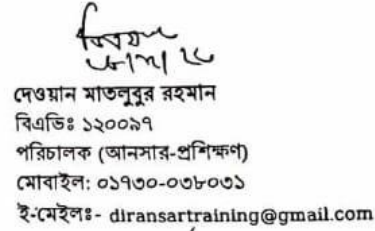 দেওয়ান মাতলুবুর রহমান
বিএভিঃ ১২০০৯৭
পরিচালক (আনসার-প্রশিক্ষণ)
মোবাইল: ০১৭৩০-০৩৮০৩১
ই-মেইলঃ- diransartraining@gmail.com